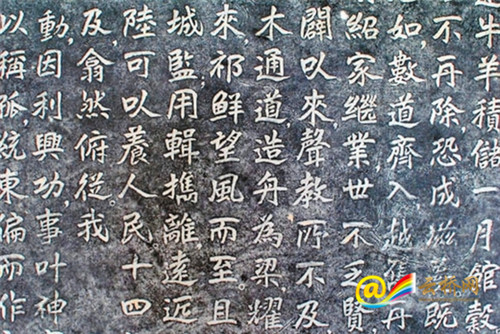 牛羊積儲一月館穀
不再除,恐成滋蔓既
如,數道齊入,越再
紹家繼業世不乏賢
闢以來,聲教所不及
木通道,造舟為梁,耀
來,祁鮮望風而至。且
城監,用輯攜離,遠近
陸,可以養人民,十四
及,翕然俯從。我
動,因利興功,事叶神
以稱孤,統東偏而作